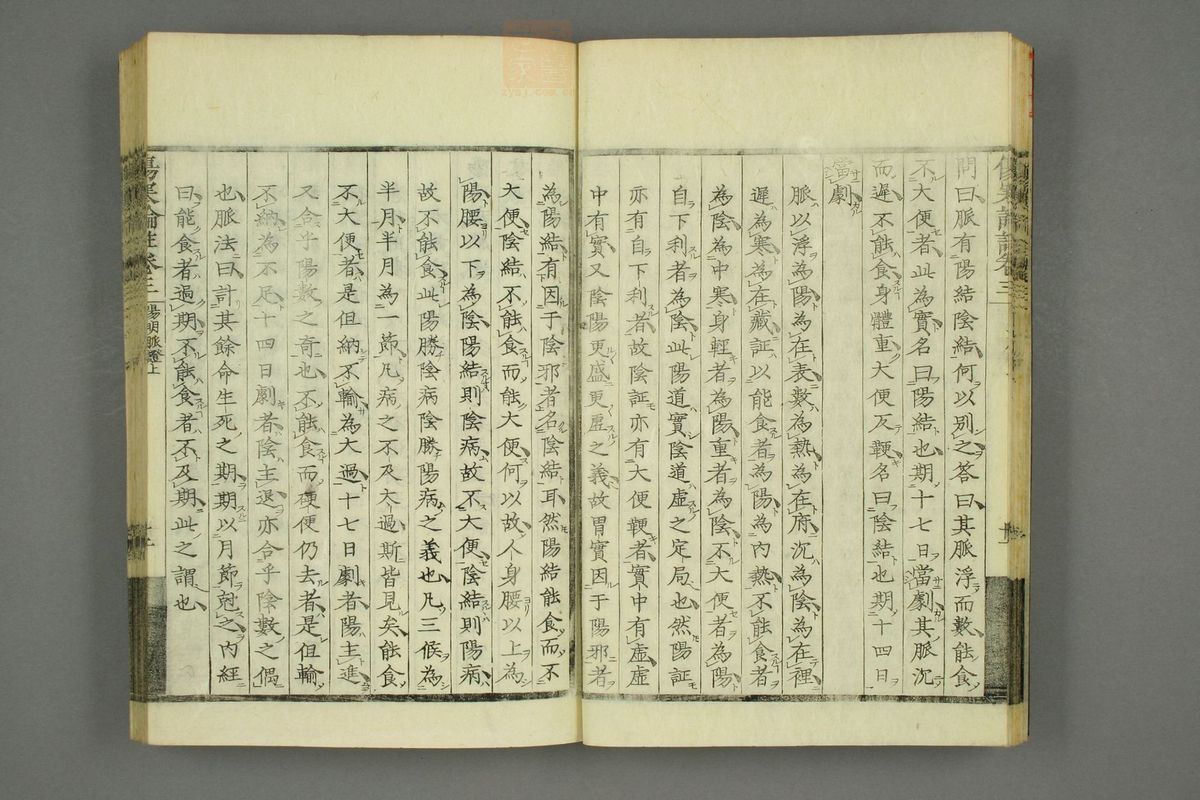 問曰脈有陽結陰結何以別之答曰其脈浮而數能食
不大便者此為實名曰陽結也期十七日當劇其脈沉
而遲不能食身體重大便反鞕名曰陰結也期十四日
當劇
脈以浮為陽為在表數為熱為在府沉為陰為在裡
遲為寒為在藏証以能食者為陽為內熱不能食者
為陰為中寒身輕者為陽重者為陰不大便者為陽
自下利者為陰此陽道實陰道虛之定局也然陽証
亦有自下利者故陰証亦有大便鞕者實中有虛虛
中有實又陰陽更盛更虛之義故胃實因于陽邪者
為陽結有因于陰邪者名陰結耳然陽結能食而不
大便陰結不能食而能大便何以故人身腰以上為
陽腰以下為陰陽結則陰病故不大便陰結則陽病
故不能食此陽勝陰病陰勝陽病之義也凡三候為
半月半月為一節凡病之不及太過斯皆見矣能食
不大便者是但納不輸為太過十七日劇者陽主進
又合乎陽數之奇也不能食而硬便仍去者是但輸
不納為不足十四日劇者陰主退亦合乎陰數之偶
也脈法曰計其餘命生死之期期以月節尅之內經
曰能食者過期不能食者不及期此之謂也
陽明脈證上